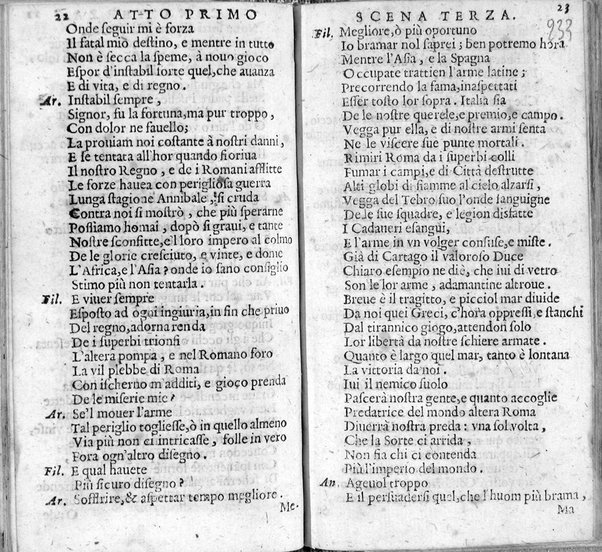 22 ATTO PRIMO
Onde seguir mi è forza
Il fatal mio destino, e mentre in tutto
Non è secca la speme, à nouo gioco
Espor d'instabil sorte quel, che auanza
E di vita, e di regno.
Ar. Instabil sempre,
Signor, fu la fortuna, ma pur troppo,
Con dolor ne fauello;
La prouiam noi costante à nostri danni,
E se tentata all'hor quando fioriua
Il nostro Regno, e de i Romani afflitte
Le forze hauea con perigliosa guerra
Lunga stagione Annibale, sì cruda
Contra noi si mostrò, che più sperarne
Possiamo homai, dopò sì graui, e tante
Nostre sconfitte, e'l loro impero al colmo
De le glorie cresciuto, e vinte, e dome
L'Africa, e l'Asia? onde io sano consiglio
Stimo più non tentarla.
Fil. E viuer sempre
Esposto ad ogni ingiuria, in fin che priuo
Del regno, adorna renda
De i superbi trionfi
L'altera pompa, e nel Romano foro
La vil plebbe di Roma
Con ischerno m'additi, e gioco prenda
De le miserie mie?
Ar. Se'l mouer l'arme
Tal periglio togliesse, ò in quello almeno
Via più non ci intricasse, folle in vero
Fora ogn'altro disegno.
Fil. E qual hauete
Più sicuro disegno?
Ar. Soffrire, & aspettar tempo megliore.
Me-
SCENA TERZA. 23
233
Fil. Megliore, ò più oportuno
Io bramar nol saprei; ben potremo hora
Mentre l'Asia, e la Spagna
Occupate trattien l'arme latine;
Precorrendo la fama, inaspettati
Esser tosto lor sopra. Italia sia
De le nostre querele, e premio, e campo.
Vegga pur ella, e di nostre armi senta
Ne le viscere sue punte mortali.
Rimiri Roma da i superbi colli
Fumar i campi, e di Città destrutte
Alti globi di fiamme al cielo alzarsi,
Vegga del Tebro suo l'onde sanguigne
De le sue squadre, e legion disfatte
I Cadaueri esangui,
E l'arme in vn volger confuse, e miste.
Già di Cartago il valoroso Duce
Chiaro esempio ne diè, che iui di vetro
Son le lor arme, adamantine altroue.
Breue è il tragitto, e picciol mar diuide
Da noi quei Greci, c'hora oppressi, e stanchi
Dal tirannico giogo, attendon solo
Lor libertà da nostre schiere armate.
Quanto è largo quel mar, tanto è lontana
La vittoria da noi.
Iui il nemico suolo
Pascerà nostra gente, e quanto accoglie
Predatrice del mondo altera Roma
Diuerrà nostra preda: vna sol volta,
Che la Sorte ci arrida,
Non fia chi ci contenda
Più l'imperio del mondo.
An. Ageuol troppo
E il persuadersi quel, che l'huom più brama,
Ma